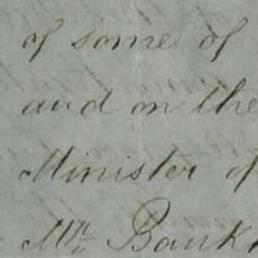 of some of
and on the
Minister of
Mr. Bank